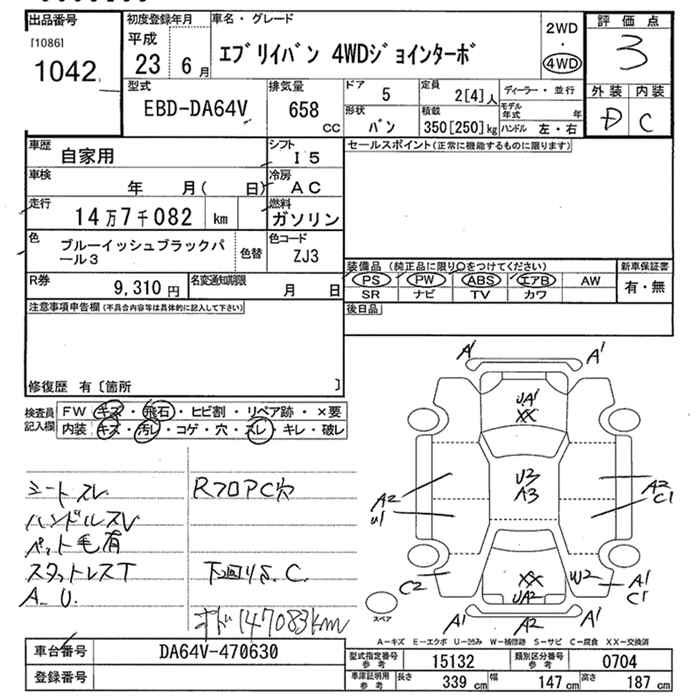 出品番号 初度登録年月 車名・グレード 評価点
[1086] 平成 エブリイバン 4WDジョインターボ 2WD ・ 4WD 3
1042 23 6月
型式 排気量 ドア 5 定員 2[4]人 ディーラー・並行 外装 内装
EBD-DA64V 658 CC 形状 バン 積載 350[250]kg モデル年式 年 D C
ハンドル 左・右
車歴 自家用 シフト I5 セールスポイント(正常に機能するものに限ります)
車検 年 月( 日) 冷房 AC
走行 14万7千082 km 燃料 ガソリン
色 ブルーイッシュブラックパール3 色替 色コード ZJ3
装備品 (純正品に限り○をつけてください) 新車保証書
R券 9,310円 名変通知期限 月 日 PS PW ABS エアB AW 有・無
SR ナビ TV カワ
注意事項申告欄(不具合内容等は具体的に記入して下さい) 後日品
修復歴 有〔箇所 〕
検査員記入欄 FW キズ・飛石・ヒビ割・リペア跡・×要
内装 キズ・汚レ・コゲ・穴・スレ・キレ・破レ
シートスレ RフロアC穴
ハンドルスレ
ペット毛有
スタットレスT 下回りS.C.
A.U.
オド147083km
A1 A1
UA1
XX
U2
A3
A2 A2
U1 C1
C2 XX W2 A1
UA2 C1
A1 A2 A1
スペア
A-キズ E-エクボ U-凹み W-補修跡 S-サビ C-腐食 XX-交換済
車台番号 DA64V-470630 型式指定番号 参考 15132 類別区分番号 参考 0704
登録番号 車庫証明用 参考 長さ 339cm 幅 147cm 高さ 187cm